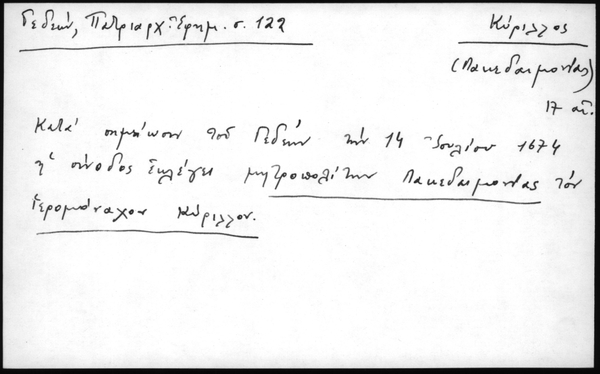 Γεδεών, Πατριαρχ. Ἐφημ. σ. 122
Κύριλλος
(Λακεδαιμονίας)
17 αἰ.
Κατά σημείωσιν τοῦ Γεδεών τήν 14 Ἰουλίου 1674
ἡ σύνοδος ἐκλέγει μητροπολίτην Λακεδαιμονίας τόν
ἱερομόναχον Κύριλλον.